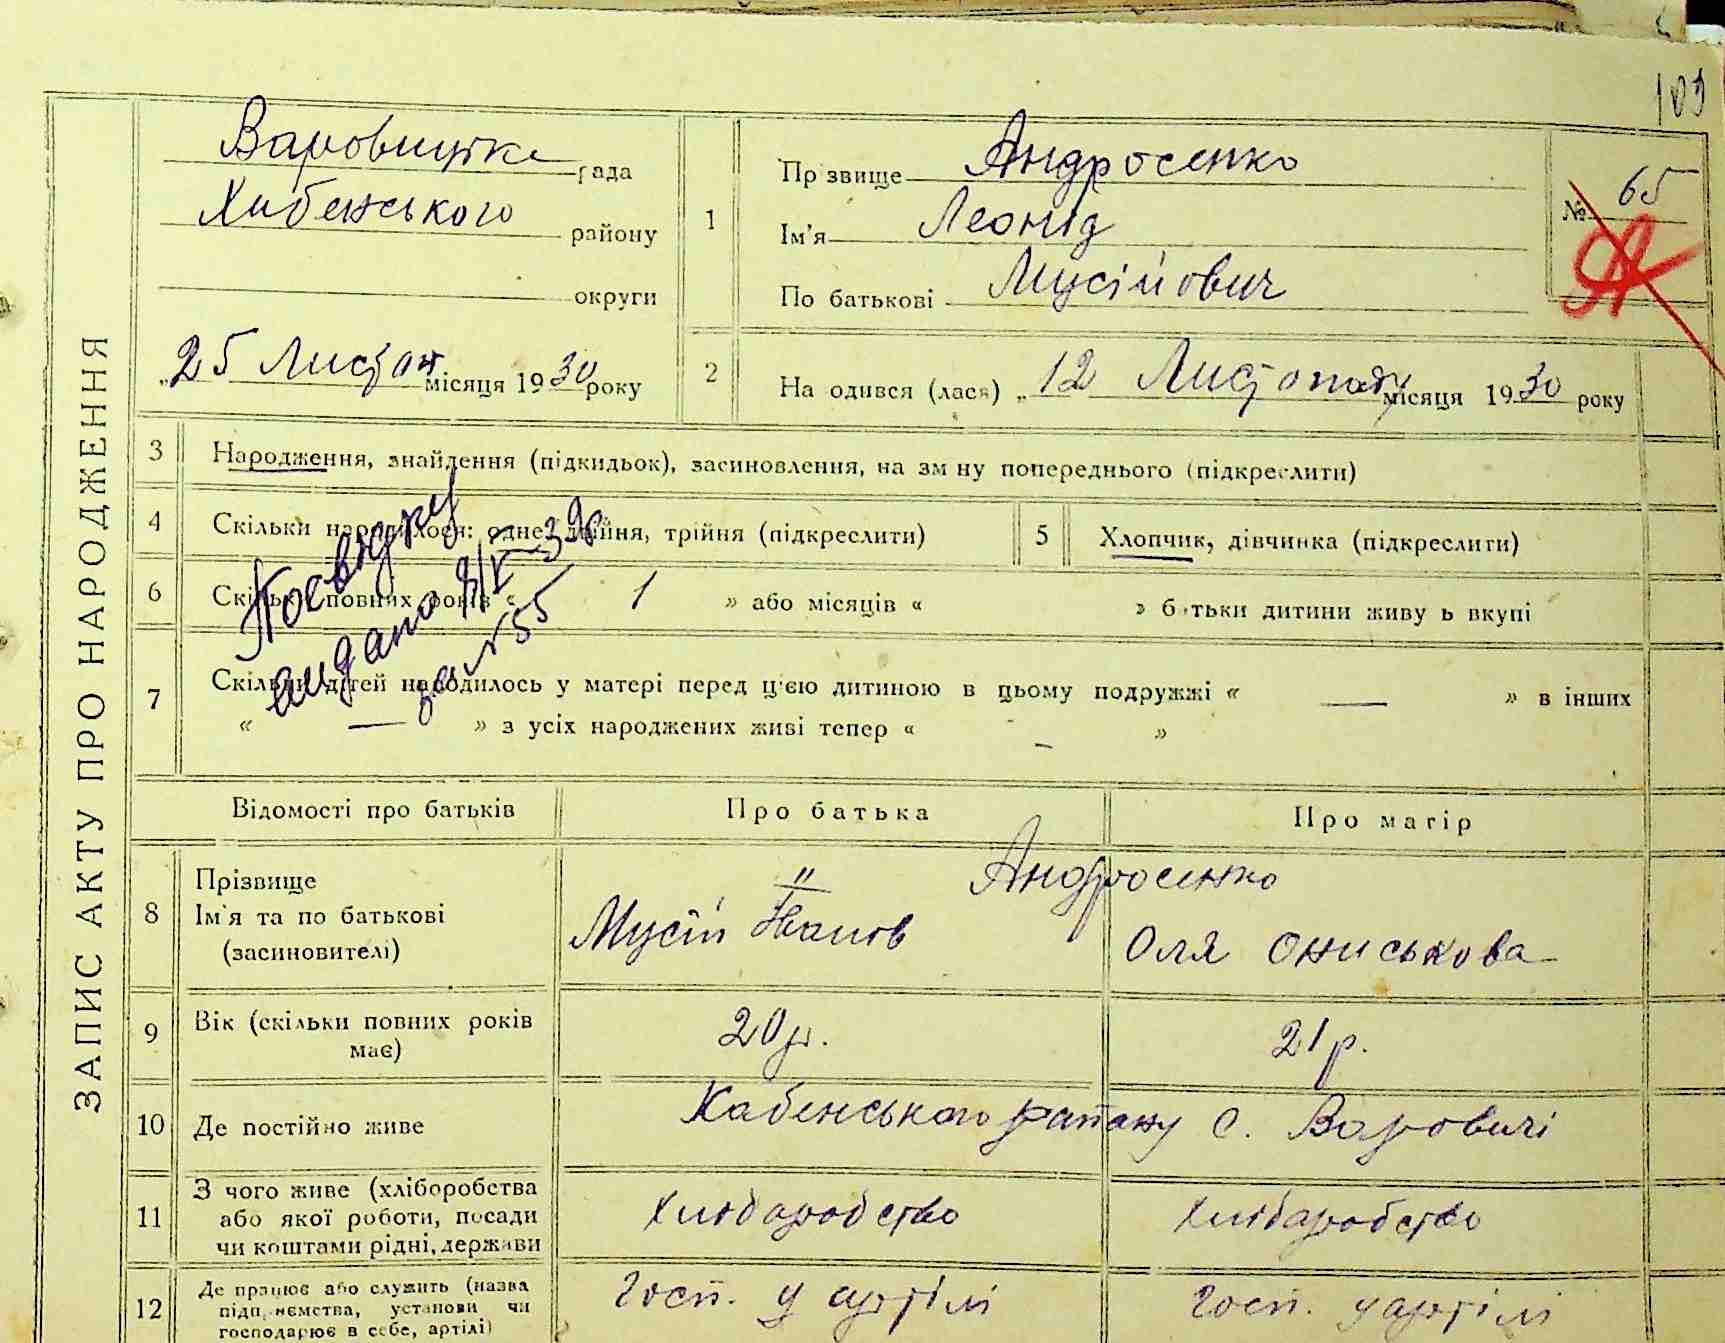 109
ЗАПИС АКТУ ПРО НАРОДЖЕННЯ
Варовицька рада
Хабенського району
округи
„25 Листоп місяця 1930 року
1
Прізвище Андросенко
Ім'я Леонід
По батькові Мусійович
№ 65
2
Народився (лася) „12 Листопаду місяця 1930 року
3 Народження, знайдення (підкидьок), засиновлення, на зміну попереднього (підкреслити)
4 Скільки народилося: одне, двійня, трійня (підкреслити)
5 Хлопчик, дівчинка (підкреслити)
6 Скільки повних років « 1 » або місяців « » батьки дитини живуть вкупі
Посвідку
видано 8/V-39р
за №55
7 Скільки дітей народилось у матері перед цією дитиною в цьому подружжі « — » в інших
« — » з усіх народжених живі тепер « - »
Відомості про батьків Про батька Про матір
8 Прізвище
Ім'я та по батькові
(засиновителі)
" Андросенко
Мусій Іванов Оля Ониськова
9 Вік (скільки повних років має) 20 р. 21 р.
10 Де постійно живе Хабенського району с. Воровичі
11 З чого живе (хліборобства
або якої роботи, посади
чи коштами рідні, держави
Хліборобство Хліборобство
12 Де працює або служить (назва
підприємства, установи чи
господарює в себе, артілі)
Госп. у артілі Госп. у артілі